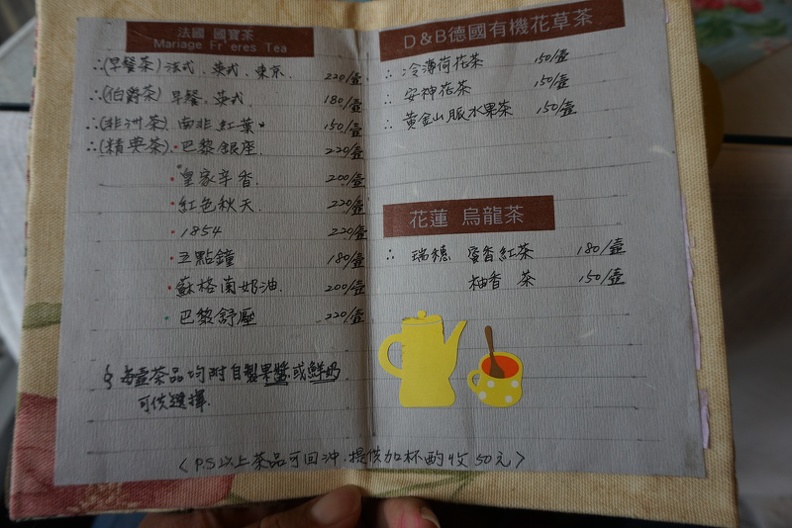 法國 國寶茶
Mariage Fr'eres Tea
∴(早餐茶) 法式、英式、東京 220/壺
∴(伯爵茶) 早餐、英式 180/壺
∴(非洲茶) 南非紅葉 150/壺
∴(精典茶)•巴黎銀座 220/壺
•皇家辛香 200/壺
•紅色秋天 220/壺
•1854 220/壺
•五點鐘 180/壺
•蘇格蘭奶油 200/壺
•巴黎舒壓 220/壺
§ 每壺茶品均附自製果醬或鮮奶
可供選擇.
D&B德國有機花草茶
∴冷薄荷花茶 150/壺
∴安神花茶 150/壺
∴黃金山脈水果茶 150/壺
花蓮 烏龍茶
∴瑞穗 蜜香紅茶 180/壺
柚香 茶 150/壺
〈P.S以上茶品可回沖,提供加杯酌收50元〉